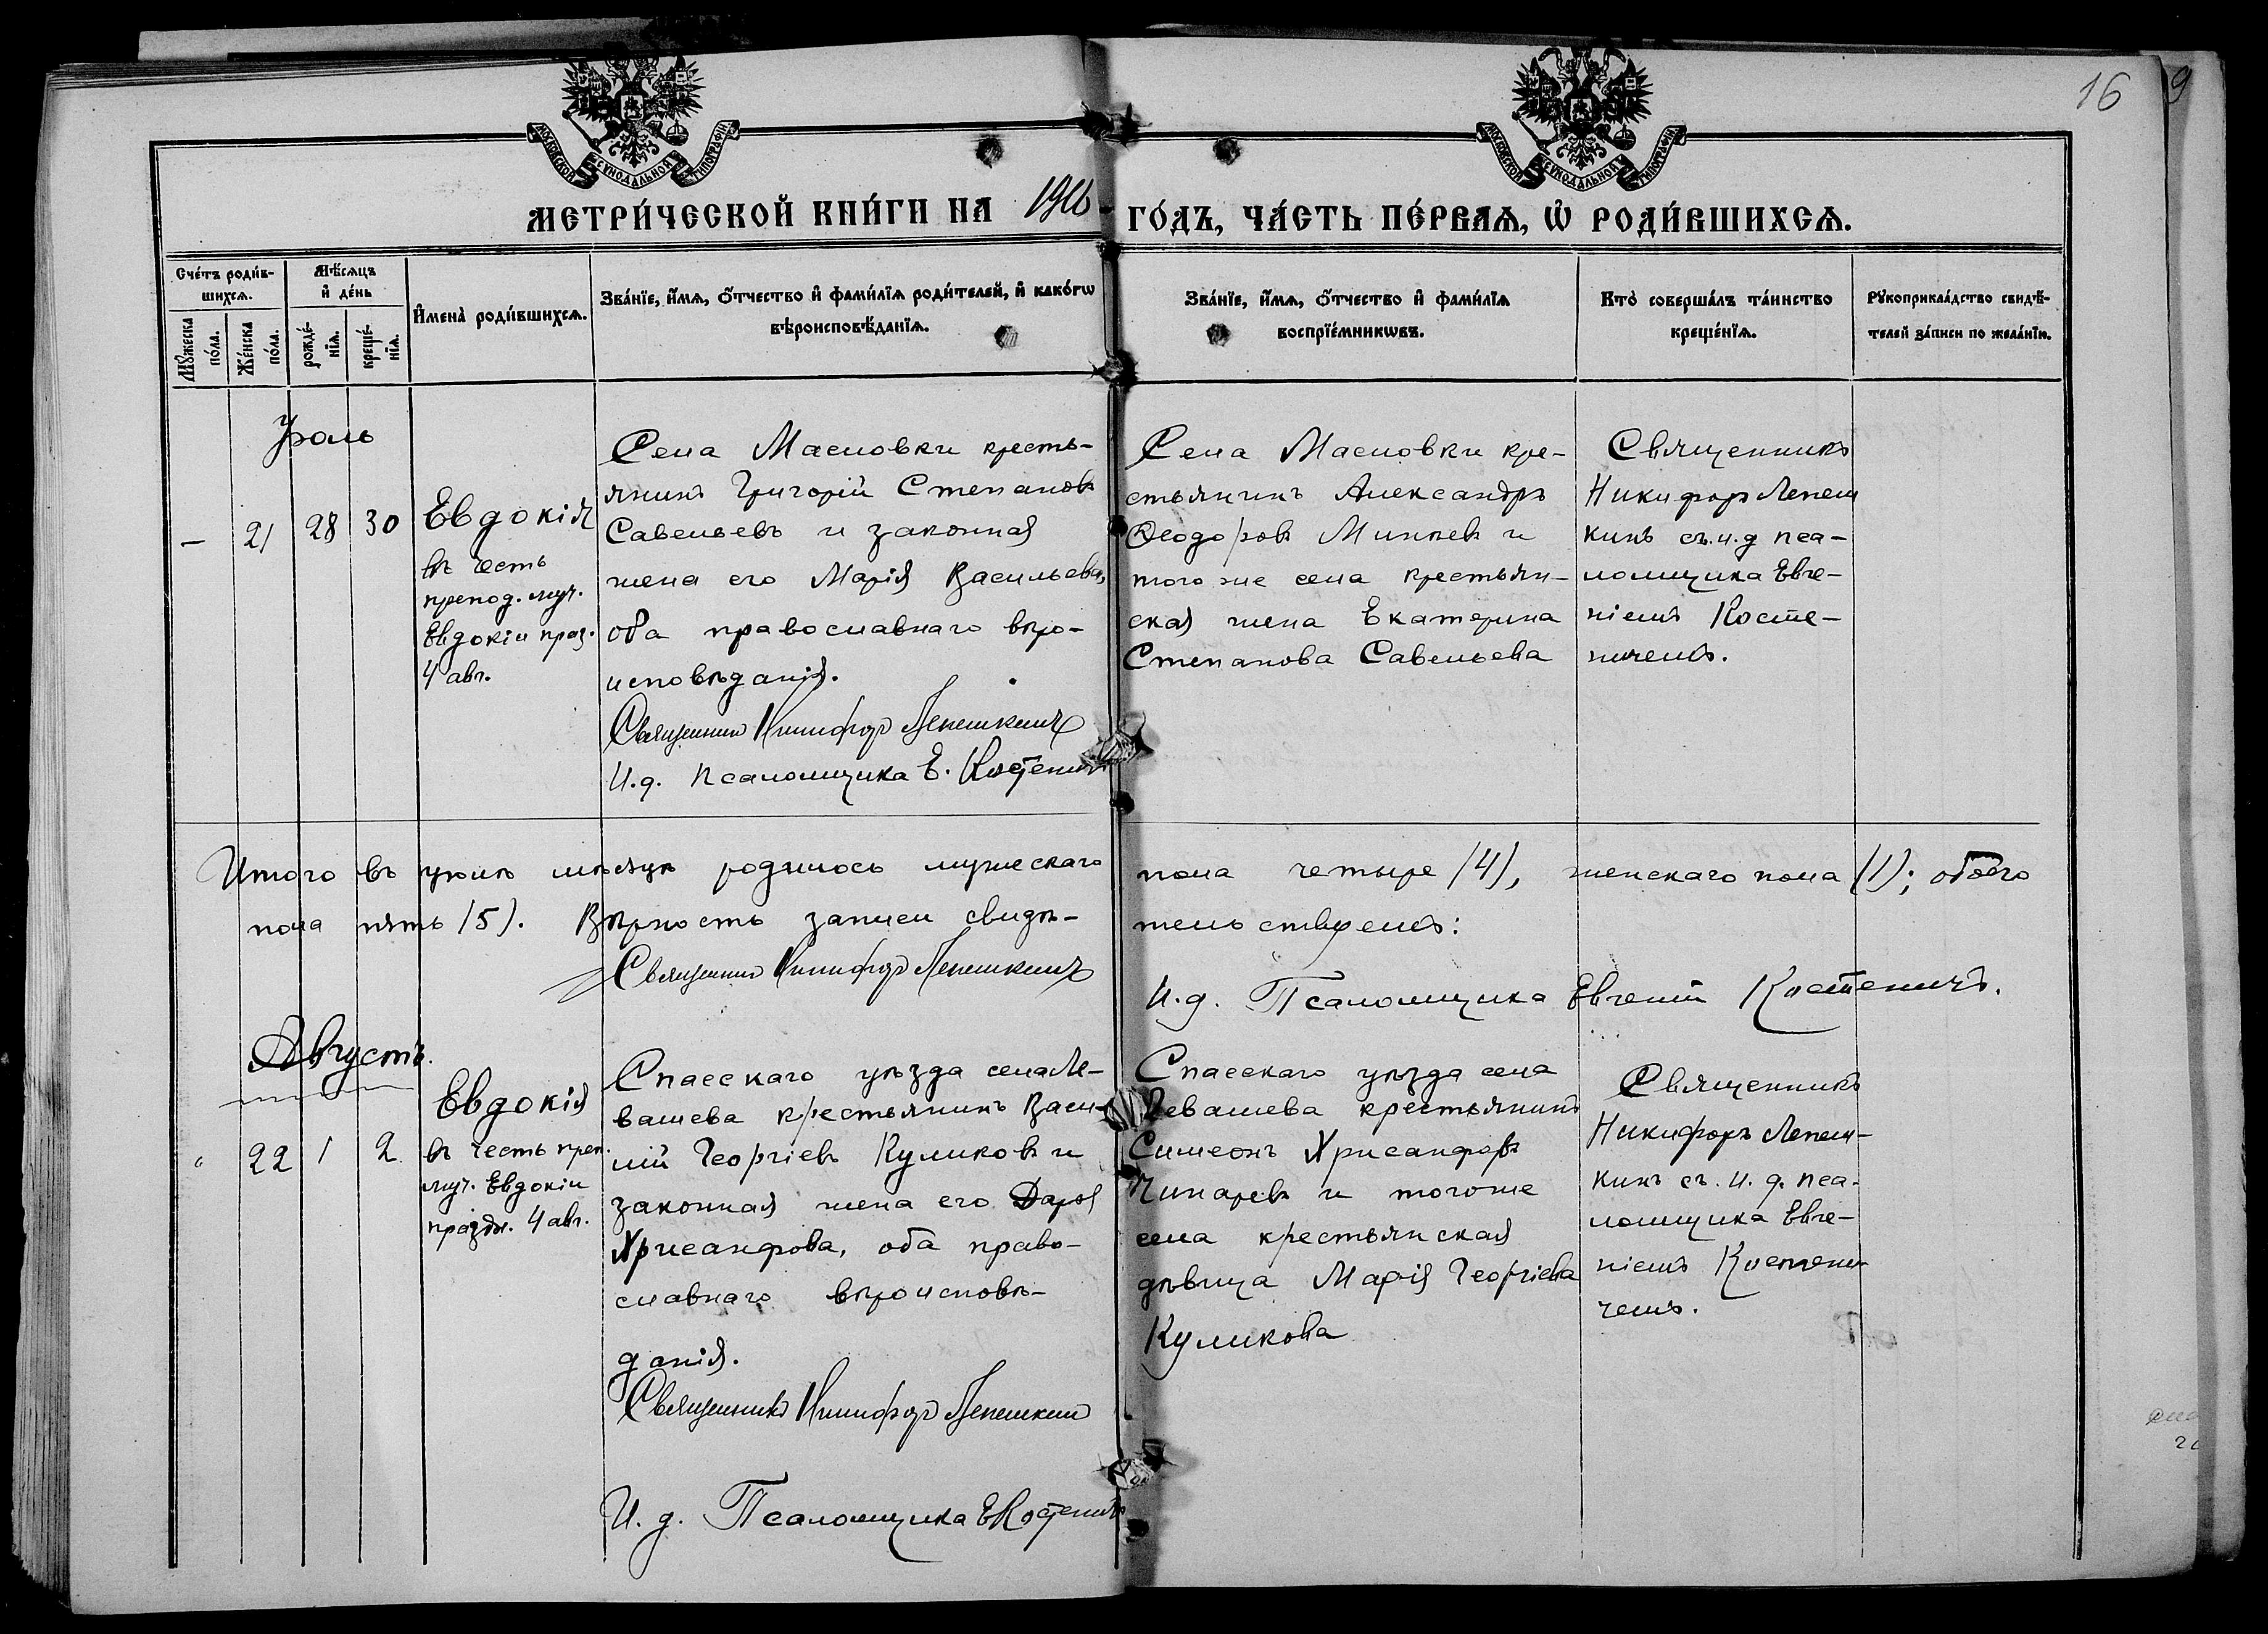 16
9
МОСКОВСКОЙ СѴНОДАЛЬНОЙ ТИПОГРАФІИ
МОСКОВСКОЙ СѴНОДАЛЬНОЙ ТИПОГРАФІИ
МЕТРИ́ЧЕСКОЙ КНИ́ГИ НА 1916 ГО́ДЪ, ЧА́СТЬ ПЕ́РВАЯ, Ѡ҆ РОДИ́ВШИХСЯ.
Сче́тъ роди́в-
шихся.
Мꙋ́жеска
по́ла.
Же́нска
по́ла.
Мѣ́сяцъ
и҆ де́нь
рожде́-
нїя.
креще́-
нїя.
И҆мена̀ роди́вшихся.
Зва́нїе, и҆́мя, ѻ҆́тчество и҆ фами́лїя роди́телей, и҆ како́гѡ
вѣроисповѣ́данїя.
Зва́нїе, и҆́мя, ѻ҆́тчество и҆ фами́лїя
воспрїе́мникѡвъ.
Кто̀ соверша́лъ та́инство
креще́нїя.
Рꙋкоприкла́дство свидѣ́-
телей за́писи по жела́нїю.
Іюль
— 21 28 30
Евдокія
въ честь
препод. муч.
Евдокіи праз.
4 авг.
Села Масловки кресть-
янинъ Григорій Степановъ
Савельевъ и законная
жена его Марія Васильева,
оба православнаго вѣро-
исповѣданія.
Священникъ Никифоръ Лепешкинъ
И.д. Псаломщика Е. Костеничъ
Села Масловки кре-
стьянинъ Александръ
Ѳеодоровъ Минѣевъ и
того же села крестьян-
ская жена Екатерина
Степанова Савельева
Священникъ
Никифоръ Лепеш
кинъ съ и.д пса-
ломщика Евге-
ніемъ Косте-
ничемъ.
Итого въ іюлѣ мѣсяцѣ родилось мужескаго пола четыре (4), женскаго пола (1); обоего
пола пять (5). Вѣрность записи свидѣ- тельствуемъ:
Священникъ Никифоръ Лепешкинъ
И.д. Псаломщика Евгеній Костеничъ.
Августъ.
" 22 1 2
Евдокія
въ честь преп.
муч. Евдокіи
праздн. 4 авг.
Спасскаго уѣзда села Ле-
вашева крестьянинъ Васи-
лій Георгіевъ Куликовъ и
законная жена его Дарья
Хрисанфова, оба право-
славнаго вѣроисповѣ-
данія.
Священникъ Никифоръ Лепешкин
И. д. Псаломщика Е Костеничъ
Спасскаго уѣзда села
Левашева крестьянинъ
Симеонъ Хрисанфовъ
Чинаревъ и тогоже
села крестьянская
дѣвица Марія Георгіева
Куликова
Священникъ
Никифоръ Лепеш-
кинъ съ. и. д. пса-
ломщика Евге-
ніемъ Костени-
чемъ.